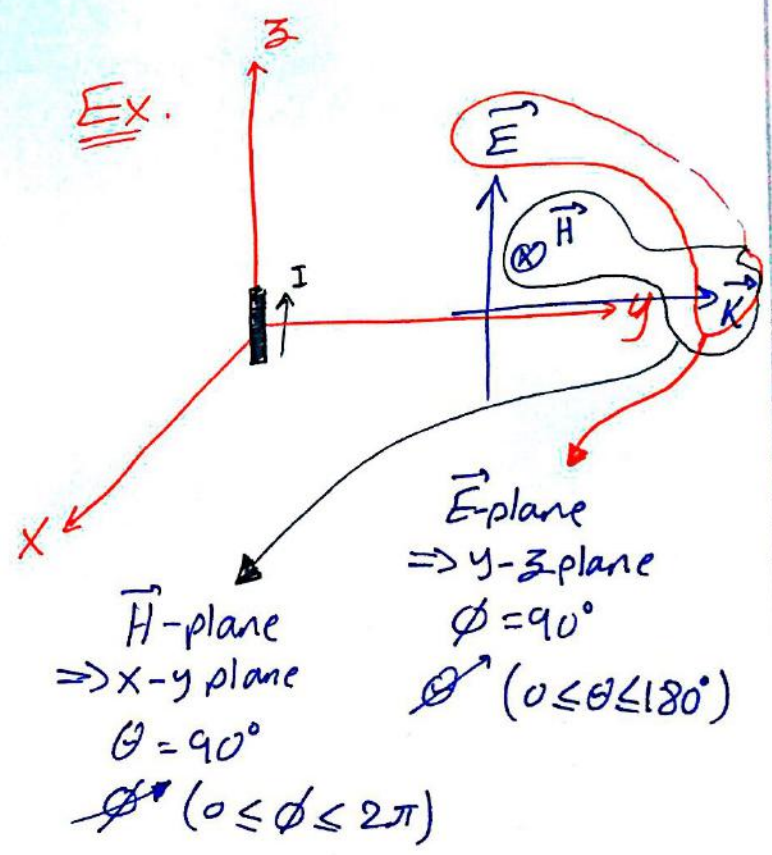 Ex.
z
E
H
I
y
K
x
E-plane
=> y-z plane
φ = 90°
θ (0 ≤ θ ≤ 180°)
H-plane
=> x-y plane
θ = 90°
φ (0 ≤ φ ≤ 2π)